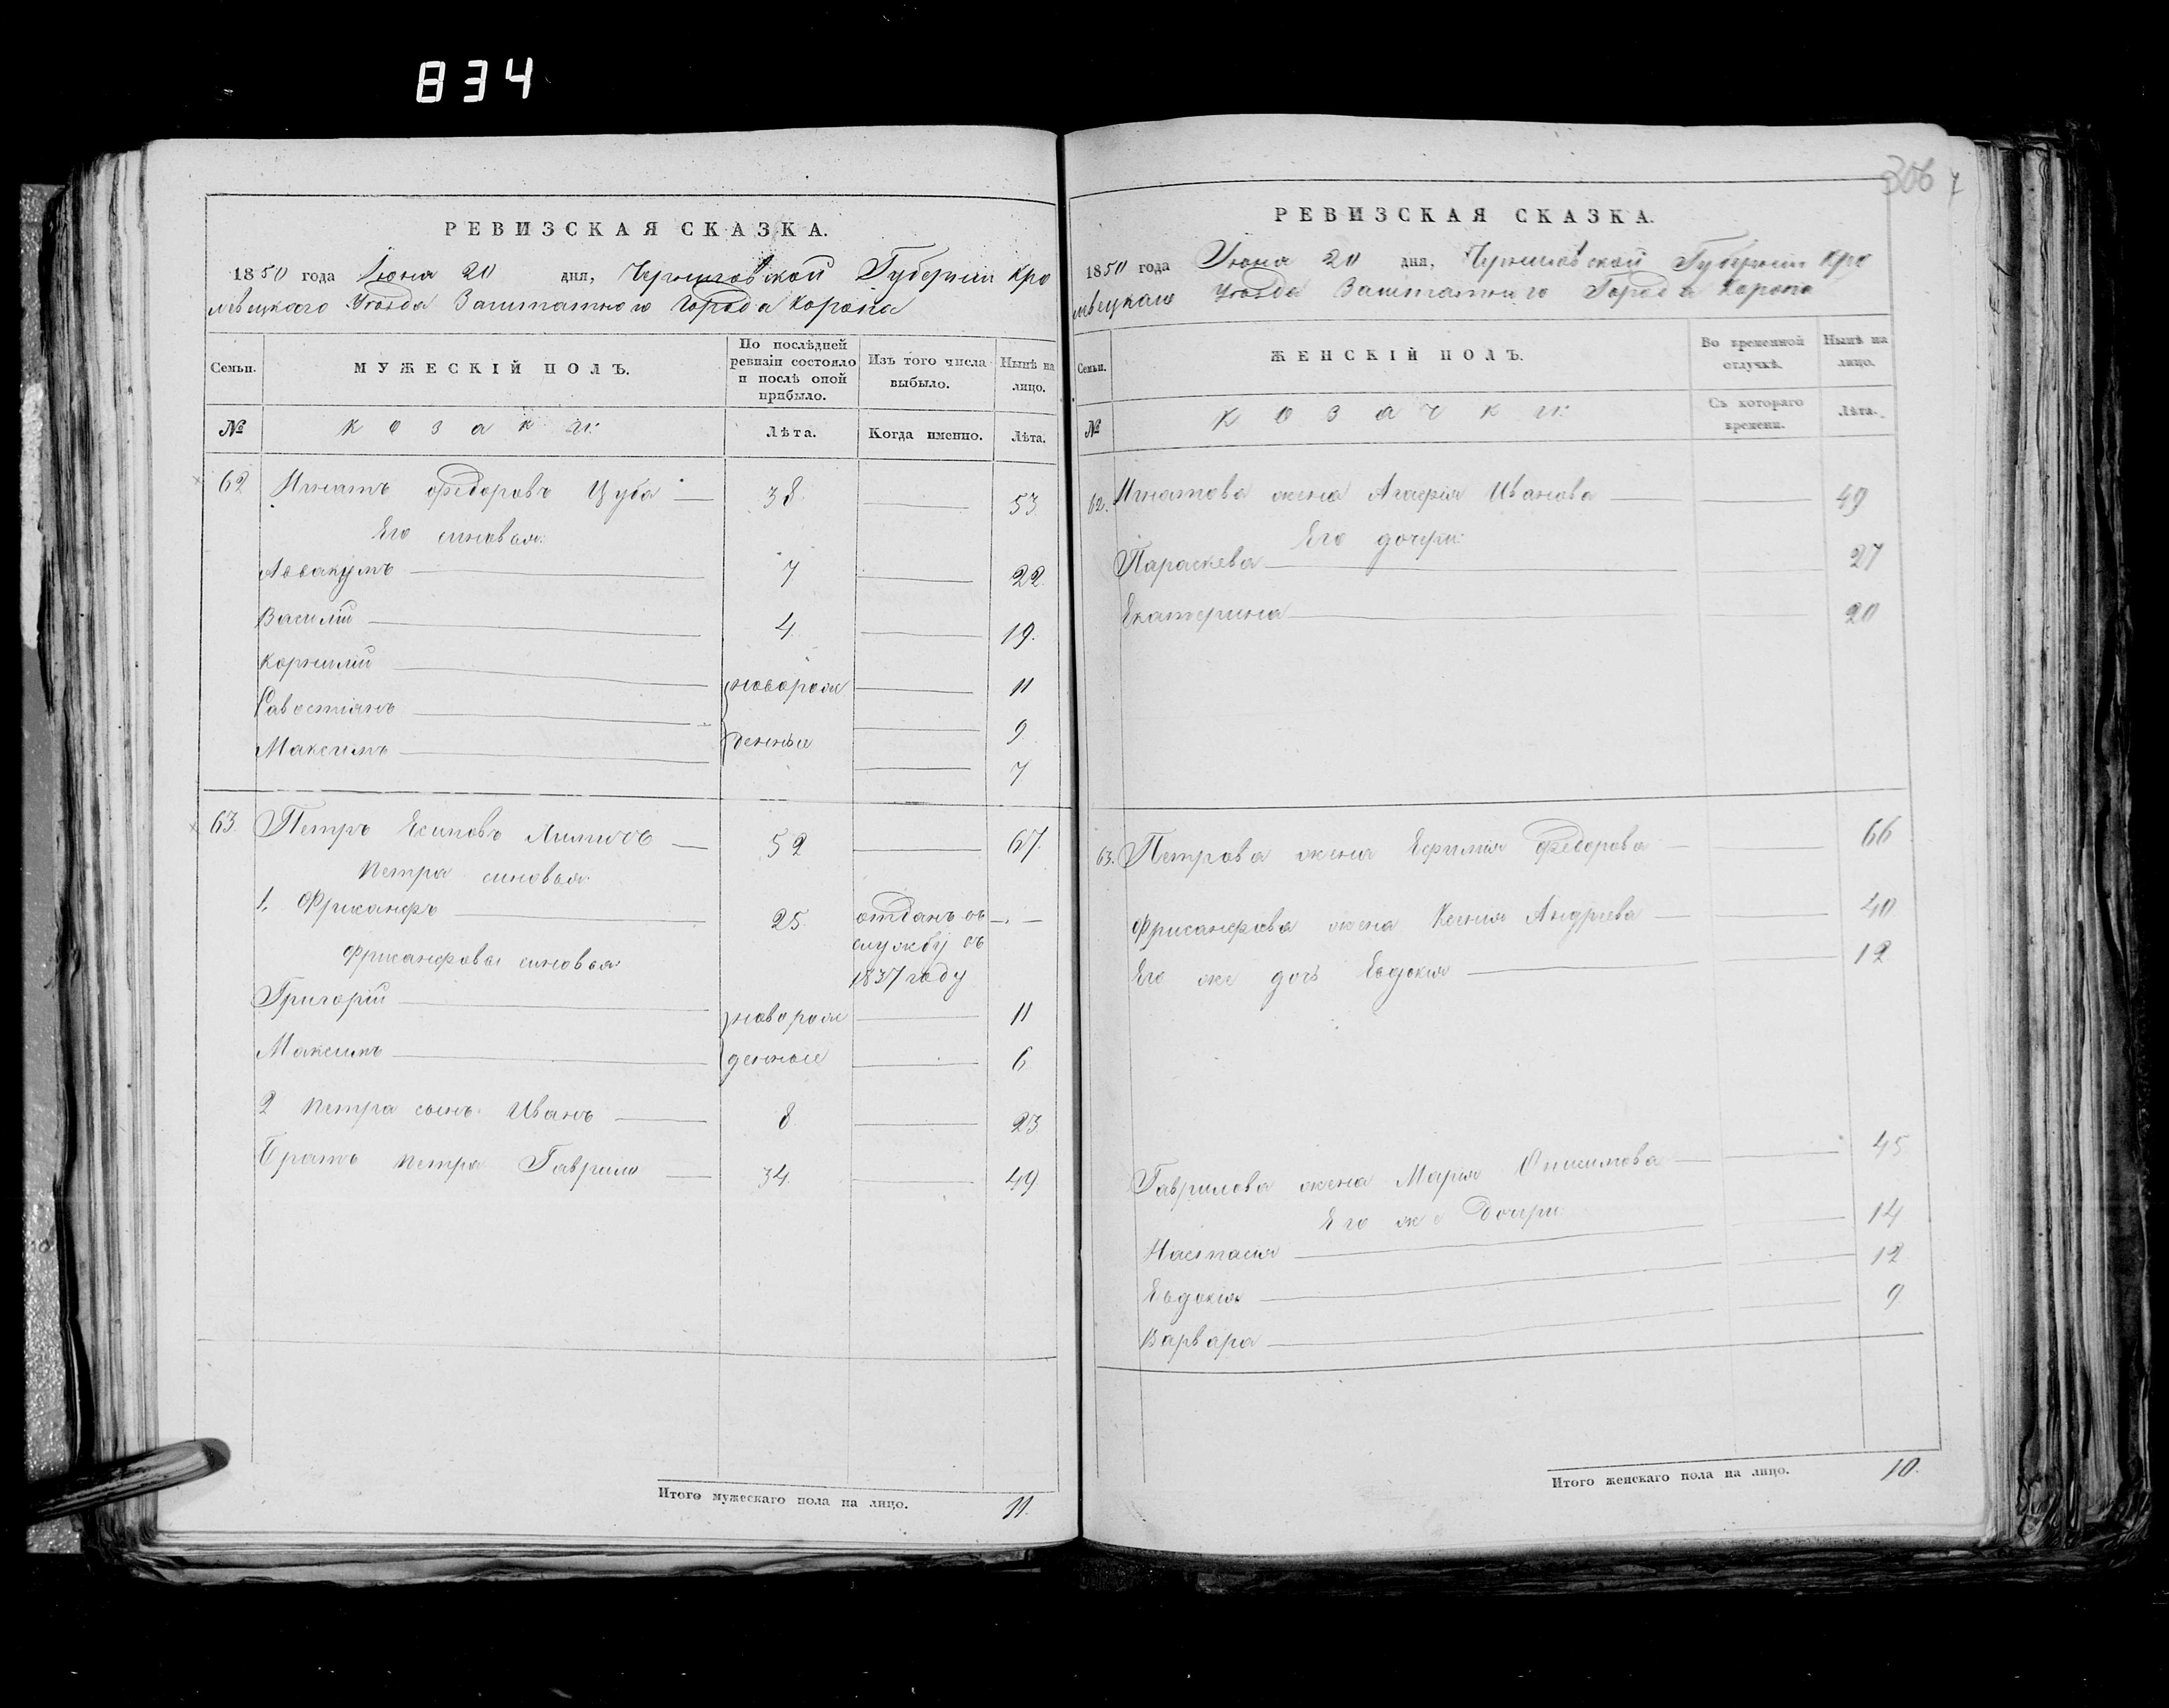 834
РЕВИЗСКАЯ СКАЗКА.
1850 года Іюня 20 дня, Черниговской Губерніи Кро
левецкаго Уѣзда Заштатного Города Коропа
Семьи.
МУЖЕСКІЙ ПОЛЪ.
По послѣдней ревизіи состояло и послѣ оной прибыло.
Изъ того числа выбыло.
Нынѣ на лицо.
№
Козаки:
Лѣта.
Когда именно.
Лѣта.
62 Игнатъ Федоровъ Цуба 38. 53
Его синовья:
Аввакумъ 7 22.
Василій 4. 19.
Корнилій новорож 11
Савостіянъ 9.
Максимъ денныи 7.
63. Петръ Есиповъ 52 67.
Петра синовья:
1, Фрисанфъ 25. отданъ въ
службу въ
1837 году
Фрисанфовы синовья:
Григорій новорож 11
Максимъ денные 6
2 Петра сынъ Иванъ 8. 23.
Братъ Петра Гаврило 34. 49.
Итого мужескаго пола на лицо. 11.
306
РЕВИЗСКАЯ СКАЗКА.
1850 года Іюня 20 дня, Черниговской Губерніи Кро
левецкаго Уѣзда Заштатного Города Коропа
Семьи.
ЖЕНСКІЙ ПОЛЪ.
Во временной отлучкѣ.
Нынѣ на лицо.
№
Козачки:
Съ котораго времени.
Лѣта.
62. Игнатова жена Агафія Иванова 49
Его дочери:
Параскева 27
Екатерина 20
63. Петрова жена Ефимія Федорова 66
Фрисанфова жена Ксенія Андреева 40
Его же дочь Евдокія 12
Гаврилова жена Марія Онисимова 45
Его же Дочери:
Настасія 14
Евдокія 12.
Варвара 9
Итого женскаго пола на лицо. 10.